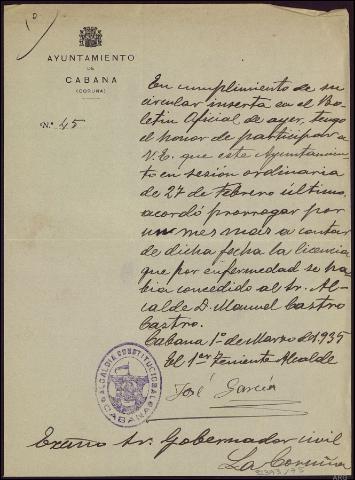 AYUNTAMIENTO
DE
CABANA
(CORUÑA)
N.º 45
En cumplimiento de su
circular inserta en el Bo-
letin Oficial de ayer, tengo
el honor de participar a
V.E. que este Ayuntamien-
to en sesión ordinaria
de 27 de Febrero último,
acordó prorrogar por
un mes mas a contar
de dicha fecha la licencia
que por enfermedad se ha-
bia concedido al Sr. Al-
calde D. Manuel Castro
Castro.
Cabana 1º de Marzo de 1935
El 1er Teniente Alcalde
José García
ALCALDIA CONSTITUCIONAL
CABANA
Excmo Sr. Gobernador civil
La Coruña